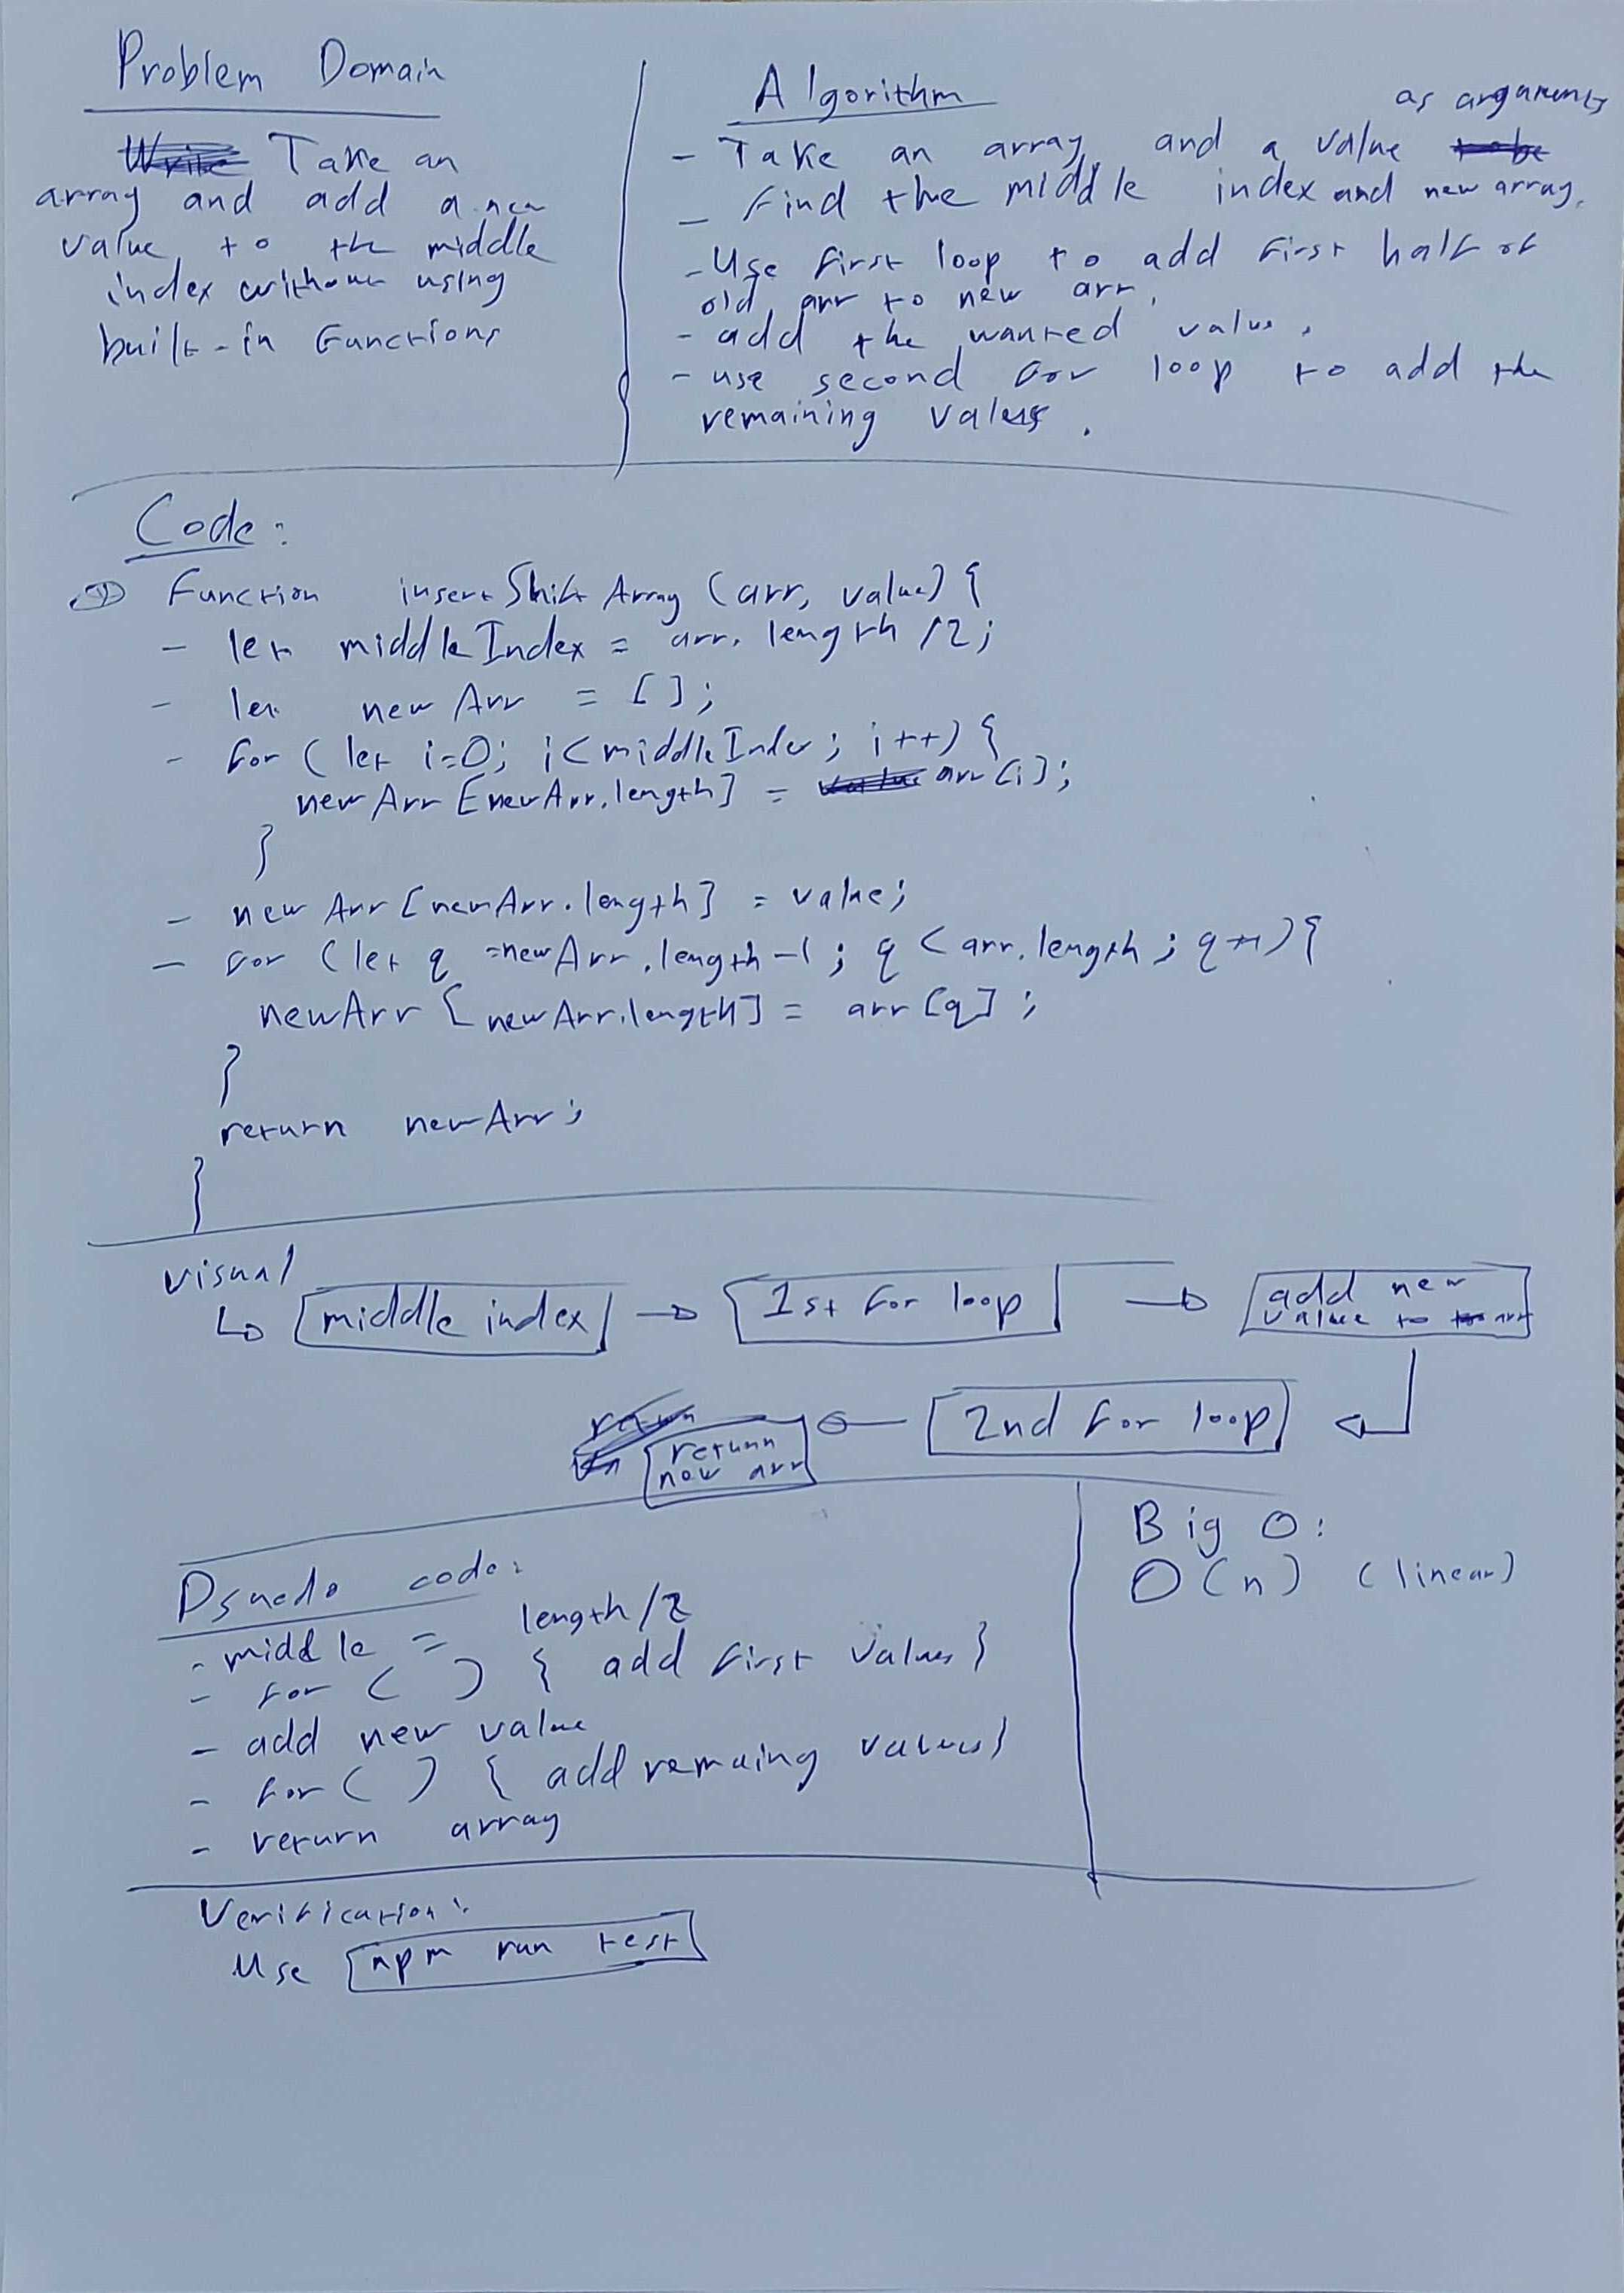 Problem Domain
Take an
array and add a new
value to the middle
index without using
built-in Functions
Algorithm
as arguments
- Take an array, and a value
- Find the middle index and new array.
- Use first loop to add first half of
old arr to new arr.
- add the wanted value.
- use second for loop to add the
remaining values.
Code:
Function insertShiftArray (arr, value) {
- let middleIndex = arr.length /2;
- let newArr = [];
- for (let i=0; i<middleIndex; i++) {
newArr [newArr.length] = arr[i];
}
- newArr [newArr.length] = value;
- for (let q =newArr.length-1; q < arr.length; q++) {
newArr [newArr.length] = arr [q];
}
return newArr;
}
visual
middle index
1st for loop
add new
value to arr
2nd for loop
return
new arr
Psuedo code:
- middle = length/2
- for ( ) { add first values }
- add new value
- for ( ) { add remaing values }
- return array
Big O:
O(n) (linear)
Verification:
Use npm run test